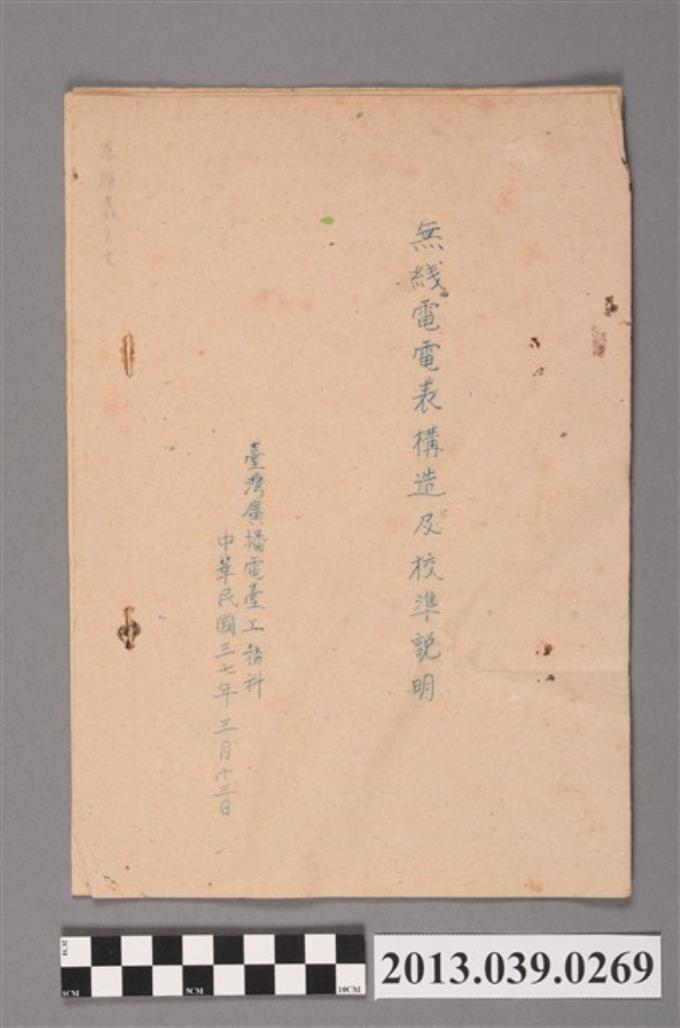 無綫電電表構造及校準説明
臺灣廣播電臺工務科
中華民國三七年三月十三日
1CM
0CM
5CM
10CM
2013.039.0269